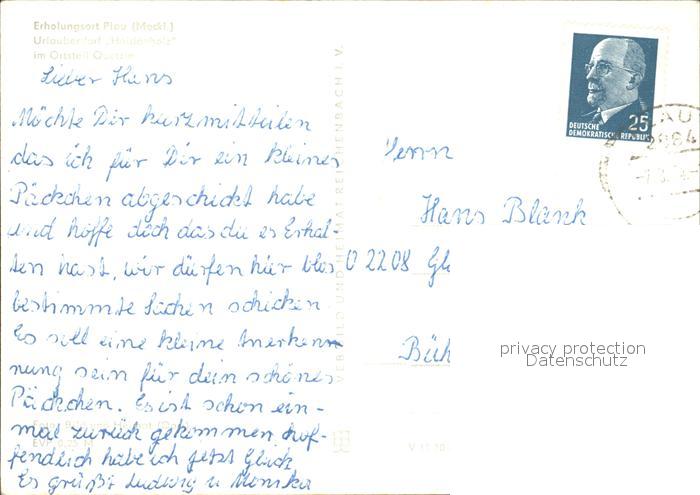 Erholungsort Plau (Meckl.)
Urlauberdorf „Heidenholz"
im Ortsteil Quetzin
Lieber Hans
Möchte Dir kurz mitteilen
das ich für Dir ein kleines
Päckchen abgeschickt habe
und hoffe doch das du es Erhal-
ten hast, wir dürfen hier blos
bestimmte Sachen schicken
Es soll eine kleine Anerken-
nung sein für dein schönes
Päckchen. Es ist schon ein-
mal zurück gekommen, hof-
fendlich habe ich jetzt Glück
Es grüßt Ludwig u Monika
EVP 0,25 M
VEB BILD UND HEIMAT REICHENBACH I. V.
25
DEUTSCHE
DEMOKRATISCHE REPUBLIK
LAU
Herrn
Hans Blank
O 2208 Gl
Büh
privacy protection
Datenschutz